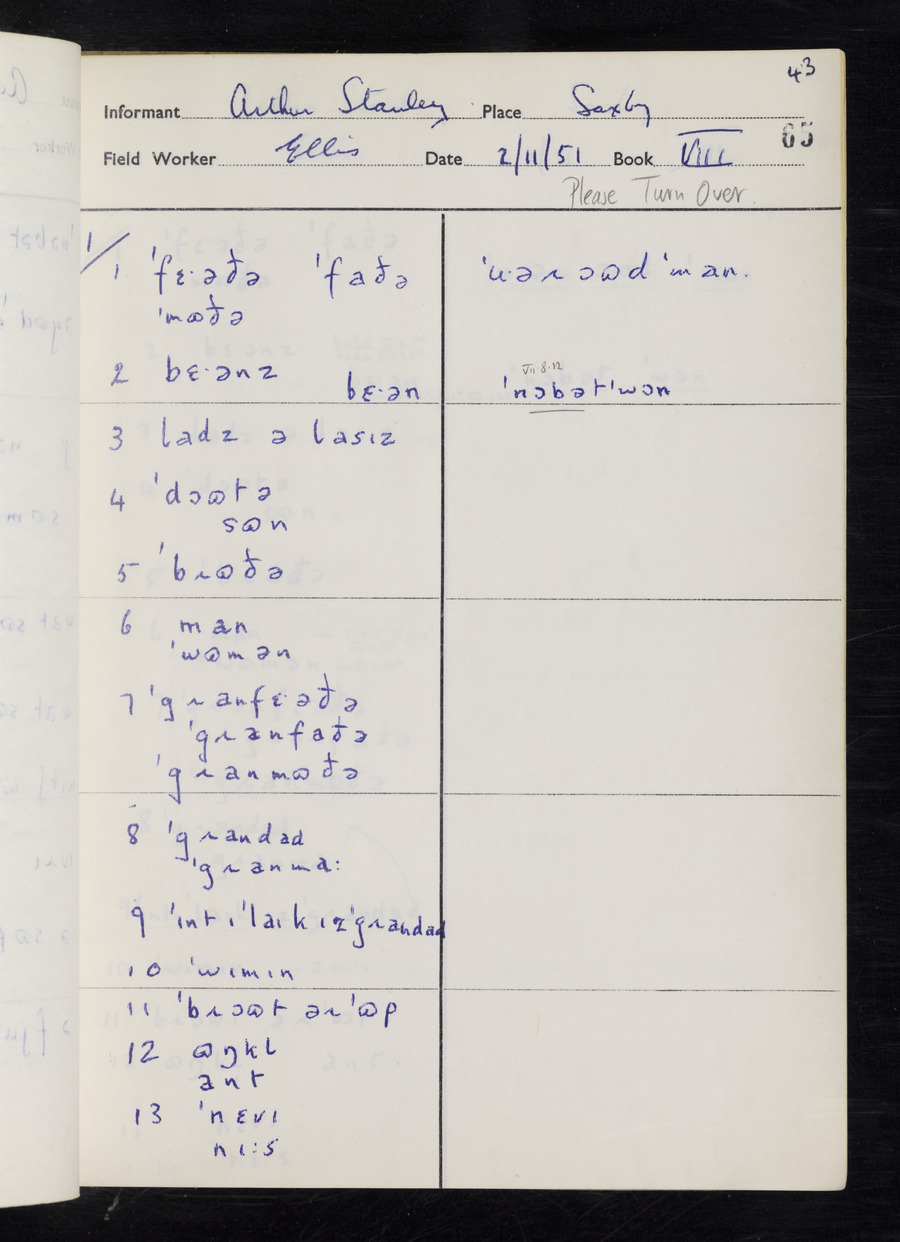 43
Informant Arthur Stanley Place Saxby
65
Field Worker Ellis Date 2/11/51 Book VIII
Please Turn Over.
1/
1 ˈfɛ·əðə ˈfaðə ˈu·əɹ ɔʊd ˈman.
ˈmʊðə
2 bɛ·ənz
bɛ·ən
VII·8·12
ˈnɔbətˈwɔn
3 ladz ə lasɪz
4 ˈdɔʊtə
sʊn
5 ˈbɹʊðə
6 man
ˈwʊmən
7 ˈgɹanfɛ·əðə
ˈgɹanfaðə
ˈgɹanmʊðə
8 ˈgɹandad
ˈgɹanma:
9 ˈɪnt ɪˈlaɪk ɪzˈgɹandad
10 ˈwɪmɪn
11 ˈbɹɔʊt əɹˈʊp
12 ʊŋkl
ant
13 ˈnɛvɪ
nɪ:s